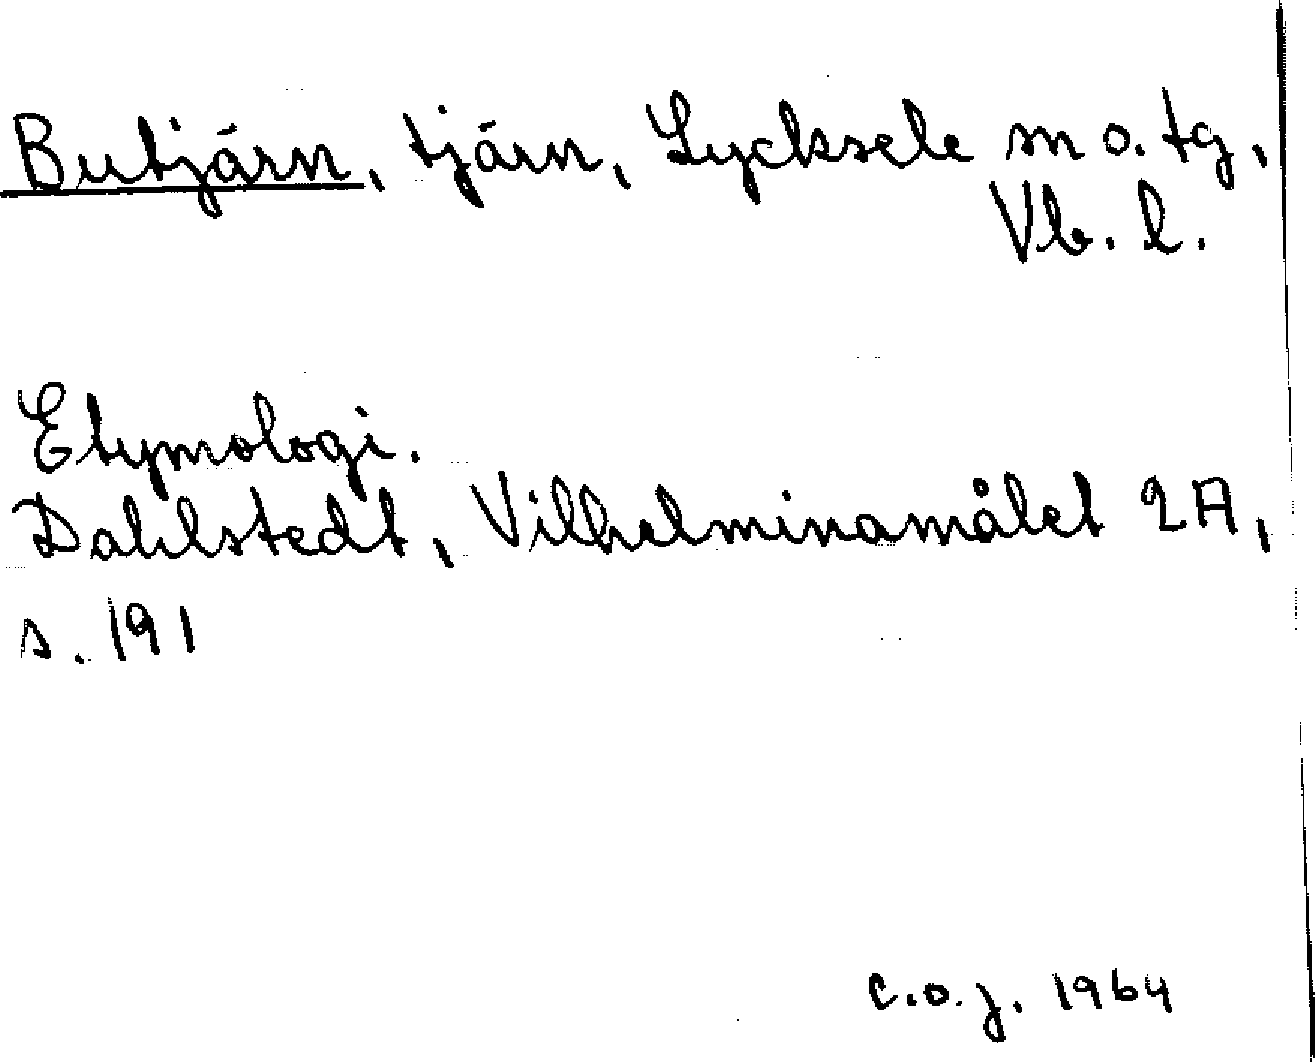 Butjärn, tjärn, Lycksele sn o. tg,
Vb. l.
Etymologi.
Dahlstedt, Vilhelminamålet 2A,
s. 191
C.o.j. 1964